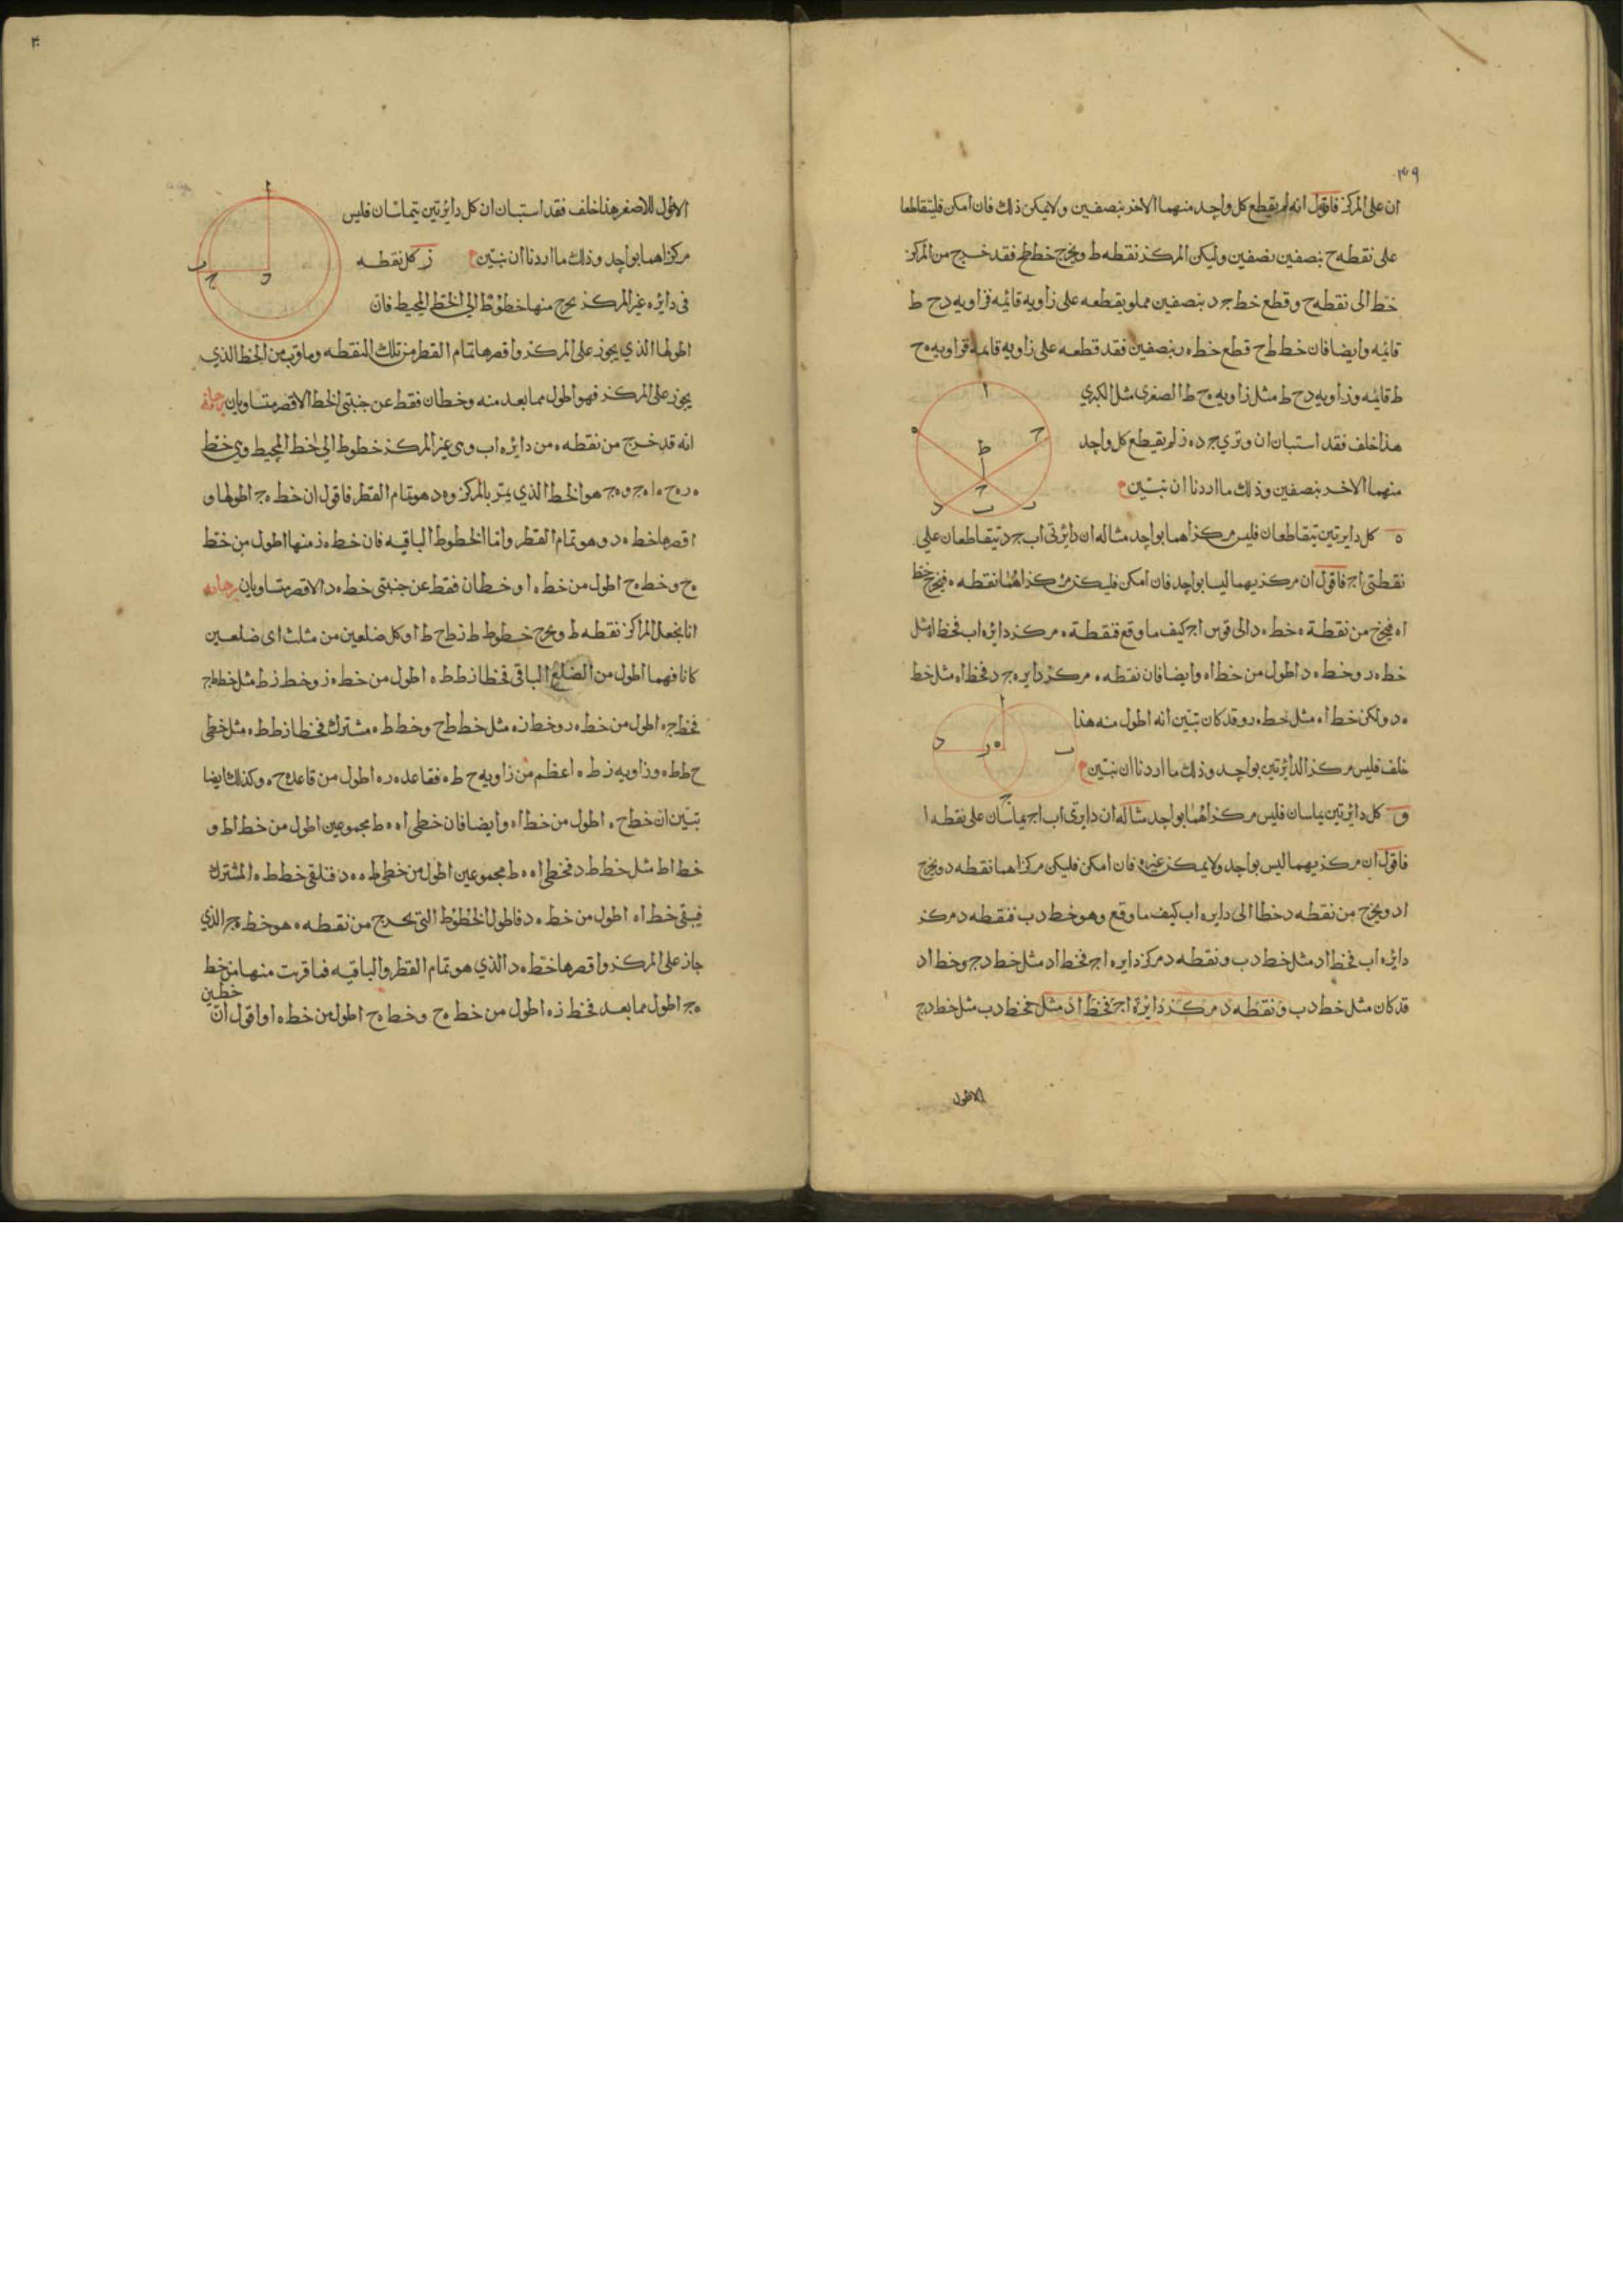 ٣٩
ان على المركز فاقول انه لم يقطع كل واحد منهما الاخر بنصفين ولا يمكن ذلك فان امكن فليتقاطعا
على نقطه ح بنصفين نصفين وليكن المركز نقطه ط ويخرج خط طح فقد خرج من المركز
خط الى نقطه ح وقطع خط جد بنصفين مملو يقطعه على زاويه قائمه فزاويه دح ط
قائمه وايضا فان خط طح قطع خط ه ر بنصفين فقد قطعه على زاويه قايمه فزاويه ه ح
ط قائمه وزاويه دح ط مثل زاويه ه ح ط الصغرى مثل الكبرى
هذا خلف فقد استبان ان وتري جد ه ز لم يقطع كل واحد
منهما الاخر بنصفين وذلك ما اردنا ان نبين
ا
ه
ح
ط
ح
د
ب
ر
ه كل دايرتين يتقاطعان فليس مركزاهما بواحد مثاله ان دائرتى اب جد يتقاطعان على
نقطتى اج فاقول ان مركزيهما ليسا بواحد فان امكن فليكن مركزاهما نقطه ه فيخرج خط
اه فيخرج من نقطة ه خط ه د الى قوس اج كيف ما وقع فنقطة ه مركز دائره اب فخط اه مثل
خط ه ر وخط ه د اطول من خط اه وايضا فان نقطه ه مركز دايره جد فخط اه مثل خط
ه د ولكن خط اه مثل خط ه ر وقد كان تبين انه اطول منه هذا
خلف فليس مركز الدائرتين بواحد وذلك ما اردنا ان نبين
ا
د
ر
ه
ب
ج
و كل دائرتين يماسان فليس مركزاهما بواحد مثاله ان دايرتى اب اج يماسان على نقطه ا
فاقول ان مركزيهما ليس بواحد ولا يمكن غيره فان امكن فليكن مركزاهما نقطه د ويخرج
اد ويخرج من نقطه د خطا الى دايره اب كيف ما وقع وهو خط دب فنقطه د مركز
دائره اب فخط اد مثل خط دب ونقطه د مركز دايره اج فخط اد مثل خط دج وخط اد
قد كان مثل خط دب ونقطه د مركز دائرة اج فخط اد مثل فخط دب مثل خط دج
الاطول
الاطول للاصغر هذا خلف فقد استبان ان كل دائرتين يتماسان فليس
مركزاهما بواحد وذلك ما اردنا ان نبين ز كل نقطه
فى دائره غير المركز يخرج منها خطوط الى الخط المحيط فان
ا
ب
ج
د
اطولها الذي يجوز على المركز واقصرها تمام القطر من تلك النقطه وما قرب من الخط الذي
يجوز على المركز فهو اطول مما بعد منه وخطان فقط عن جنبتى الخط الاقصر متساويان برهانه
انه قد خرج من نقطه ه من دائره اب وهى غير المركز خطوط الى الخط المحيط وهى خط
ه ر ه ح ه ا ه ج وه ج هو الخط الذي يمر بالمركز وه د هو تمام القطر فاقول ان خط ه ج اطولها و
اقصرها خط ه د وهو تمام القطر واما الخطوط الباقيه فان خط ه ز منها اطول من خط
ه ح وخط ه ح اطول من خط ه ا وخطان فقط عن جنبتى خط ه د الاقصر متساويان برهانه
انا نجعل المركز نقطه ط ويخرج خطوط ط ز ط ح ط ا وكل ضلعين من مثلث اى ضلعين
كانا فهما اطول من الضلع الباقى فخطا ز ط ط ه اطول من خط ه ز وخط ز ط مثل خط ط ج
فخط ج ه اطول من خط ه ر وخط ز ه مثل خط ط ح وخط ط ه مشترك فخطا ز ط ط ه مثل خطى
ح ط ط ه وزاويه ز ط ه اعظم من زاويه ح ط ه فقاعده ر ه اطول من قاعدة ح ه وكذلك ايضا
تبين ان خط ح ه اطول من خط اه وايضا فان خطى اه ه ط مجموعين اطول من خط اط و
خط اط مثل خط ط د فخطى اه ه ط مجموعين اطول من خطى ط ه ه د فنلقى خط ط ه المشترك
فيبقى خط اه اطول من خط ه د فاطول الخطوط التى تخرج من نقطه ه هو خط ه ج الذي
جاز على المركز واقصرها خط ه د الذي هو تمام القطر والباقيه فما قربت منها من خط
ه ج اطول مما بعد فخط ز ه اطول من خط ه ح وخط ه ح اطول من خط ه ا واقول ان
خطين